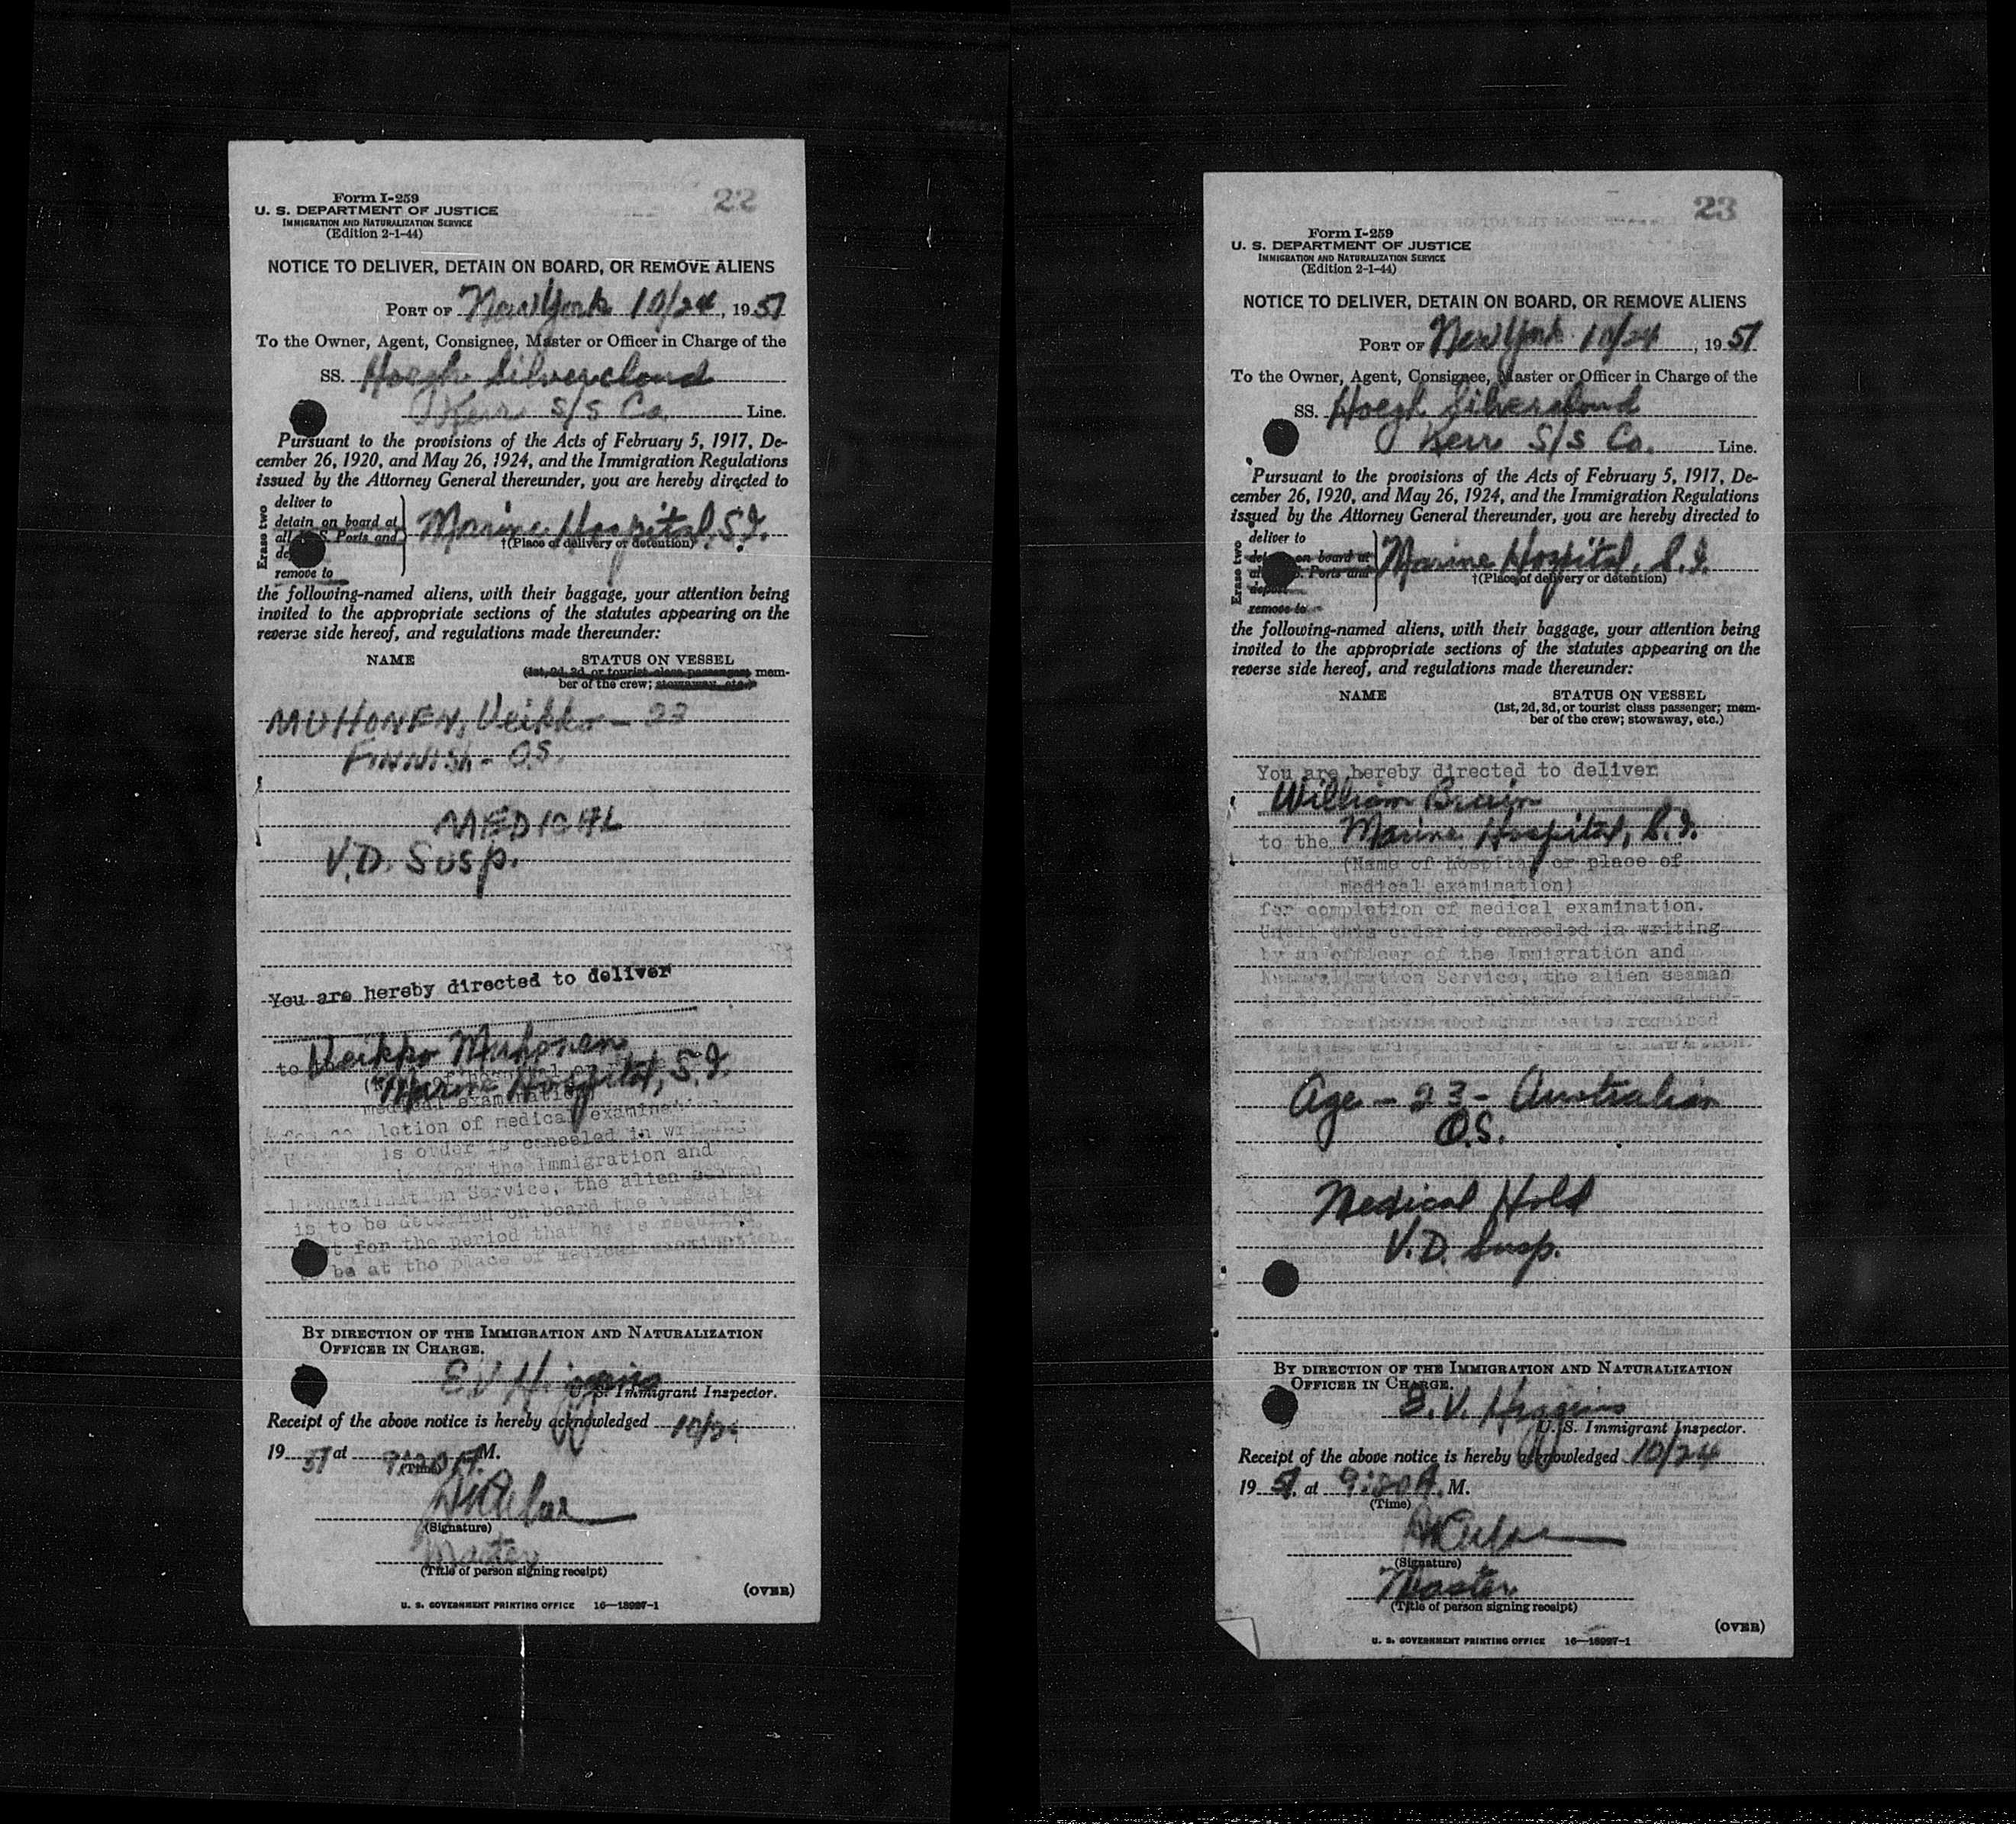 22
Form I-259
U. S. DEPARTMENT OF JUSTICE
IMMIGRATION AND NATURALIZATION SERVICE
(Edition 2-1-44)
NOTICE TO DELIVER, DETAIN ON BOARD, OR REMOVE ALIENS
PORT OF New York 10/24, 1951
To the Owner, Agent, Consignee, Master or Officer in Charge of the
SS. Hoegh Silvercloud
Kerr S/S Co. Line.
Pursuant to the provisions of the Acts of February 5, 1917, De-
cember 26, 1920, and May 26, 1924, and the Immigration Regulations
issued by the Attorney General thereunder, you are hereby directed to
Erase two
deliver to
detain on board at
all U.S. Ports and
remove to
Marine Hospital, S.I.
†(Place of delivery or detention)
the following-named aliens, with their baggage, your attention being
invited to the appropriate sections of the statutes appearing on the
reverse side hereof, and regulations made thereunder:
NAME STATUS ON VESSEL
(1st, 2d, 3d, or tourist class passenger; mem-
ber of the crew; stowaway, etc.)
MUHONEN, Veikko - 23
FINNISH - O.S.
MEDICAL
V.D. Susp.
You are hereby directed to deliver
Veikko Muhonen
to Marine Hospital, S.I.
medical examination)
lotion of medical examination
is order is canceled in writing
of the Immigration and
Naturalization Service, the alien seaman
is to be detained on board the vessel
for the period that he is required
be at the place of medical examination.
BY DIRECTION OF THE IMMIGRATION AND NATURALIZATION
OFFICER IN CHARGE.
E.V. Higgins
U. S. Immigrant Inspector.
Receipt of the above notice is hereby acknowledged 10/24
1951 at 9:20 A. M.
(Time)
(Signature)
Master
(Title of person signing receipt)
(OVER)
U. S. GOVERNMENT PRINTING OFFICE 16—18927-1
23
Form I-259
U. S. DEPARTMENT OF JUSTICE
IMMIGRATION AND NATURALIZATION SERVICE
(Edition 2-1-44)
NOTICE TO DELIVER, DETAIN ON BOARD, OR REMOVE ALIENS
PORT OF New York 10/24, 1951
To the Owner, Agent, Consignee, Master or Officer in Charge of the
SS. Hoegh Silvercloud
Kerr S/S Co. Line.
Pursuant to the provisions of the Acts of February 5, 1917, De-
cember 26, 1920, and May 26, 1924, and the Immigration Regulations
issued by the Attorney General thereunder, you are hereby directed to
Erase two
deliver to
on board at
Ports and
deport
remove to
Marine Hospital, S.I.
†(Place of delivery or detention)
the following-named aliens, with their baggage, your attention being
invited to the appropriate sections of the statutes appearing on the
reverse side hereof, and regulations made thereunder:
NAME STATUS ON VESSEL
(1st, 2d, 3d, or tourist class passenger; mem-
ber of the crew; stowaway, etc.)
You are hereby directed to deliver
William Brain
to the Marine Hospital, S.I.
(Name of hospital or place of
medical examination)
for completion of medical examination.
Until this order is canceled in writing
by an officer of the Immigration and
Naturalization Service, the alien seaman
required
Age - 23 - Australian
O.S.
Medical Hold
V.D. Susp.
BY DIRECTION OF THE IMMIGRATION AND NATURALIZATION
OFFICER IN CHARGE.
E. V. Higgins
U. S. Immigrant Inspector.
Receipt of the above notice is hereby acknowledged 10/24
1951 at 9:20 A. M.
(Time)
(Signature)
Master
(Title of person signing receipt)
(OVER)
U. S. GOVERNMENT PRINTING OFFICE 16—18927-1